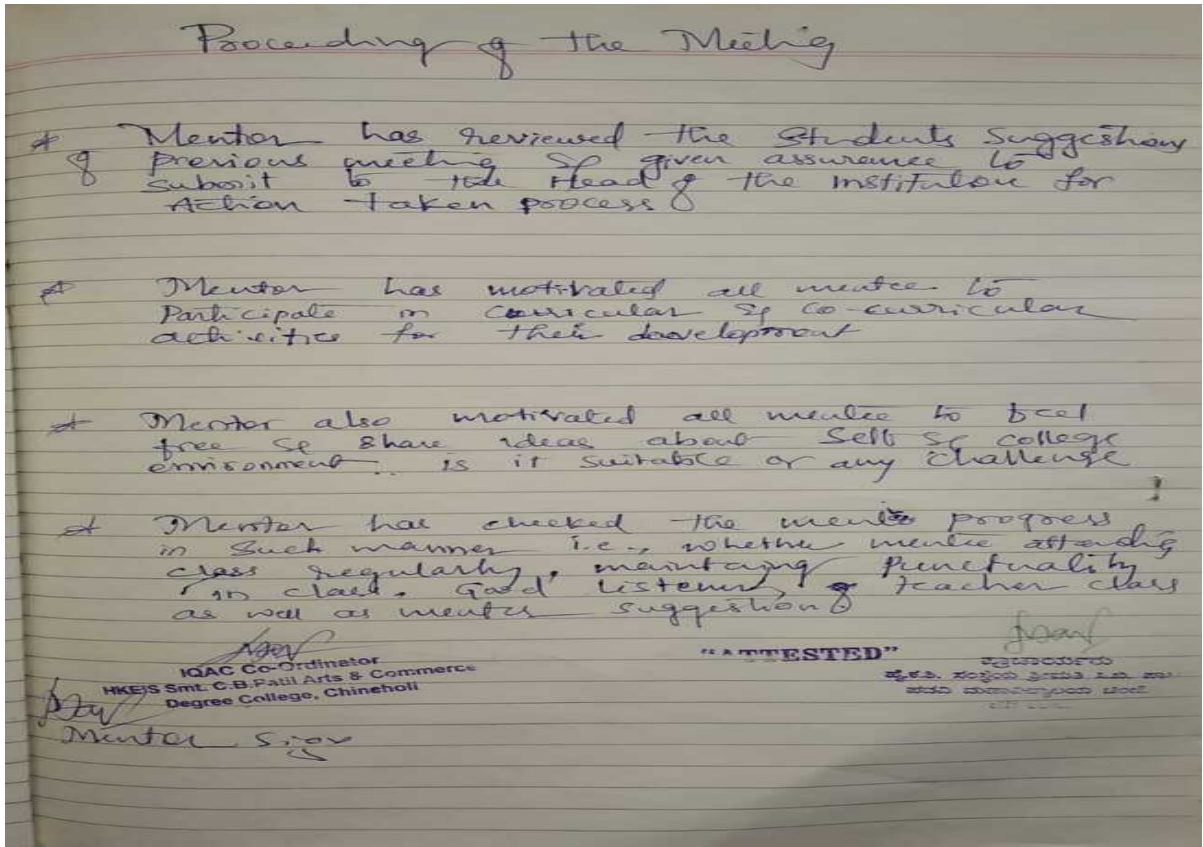 Proceeding of the Meeting
* Mentor has reviewed the Students Suggestions
of previous meeting & given assurance to
submit to the Head of the institution for
Action taken process
* Mentor has motivated all mentee to
Participate in curricular & co-curricular
activities for their development
* Mentor also motivated all mentee to feel
free & share ideas about Self & college
environment. is it suitable or any challenge
* Mentor has checked the mentee progress
in such manner i.e., whether mentee attending
class regularly, maintaing Punctuality
in class. Good listener of teacher class
as well as mentor suggestion
IQAC Co-Ordinator
HKE'S Smt. C.B.Patil Arts & Commerce
Degree College, Chincholi
"ATTESTED"
Mentor Sign